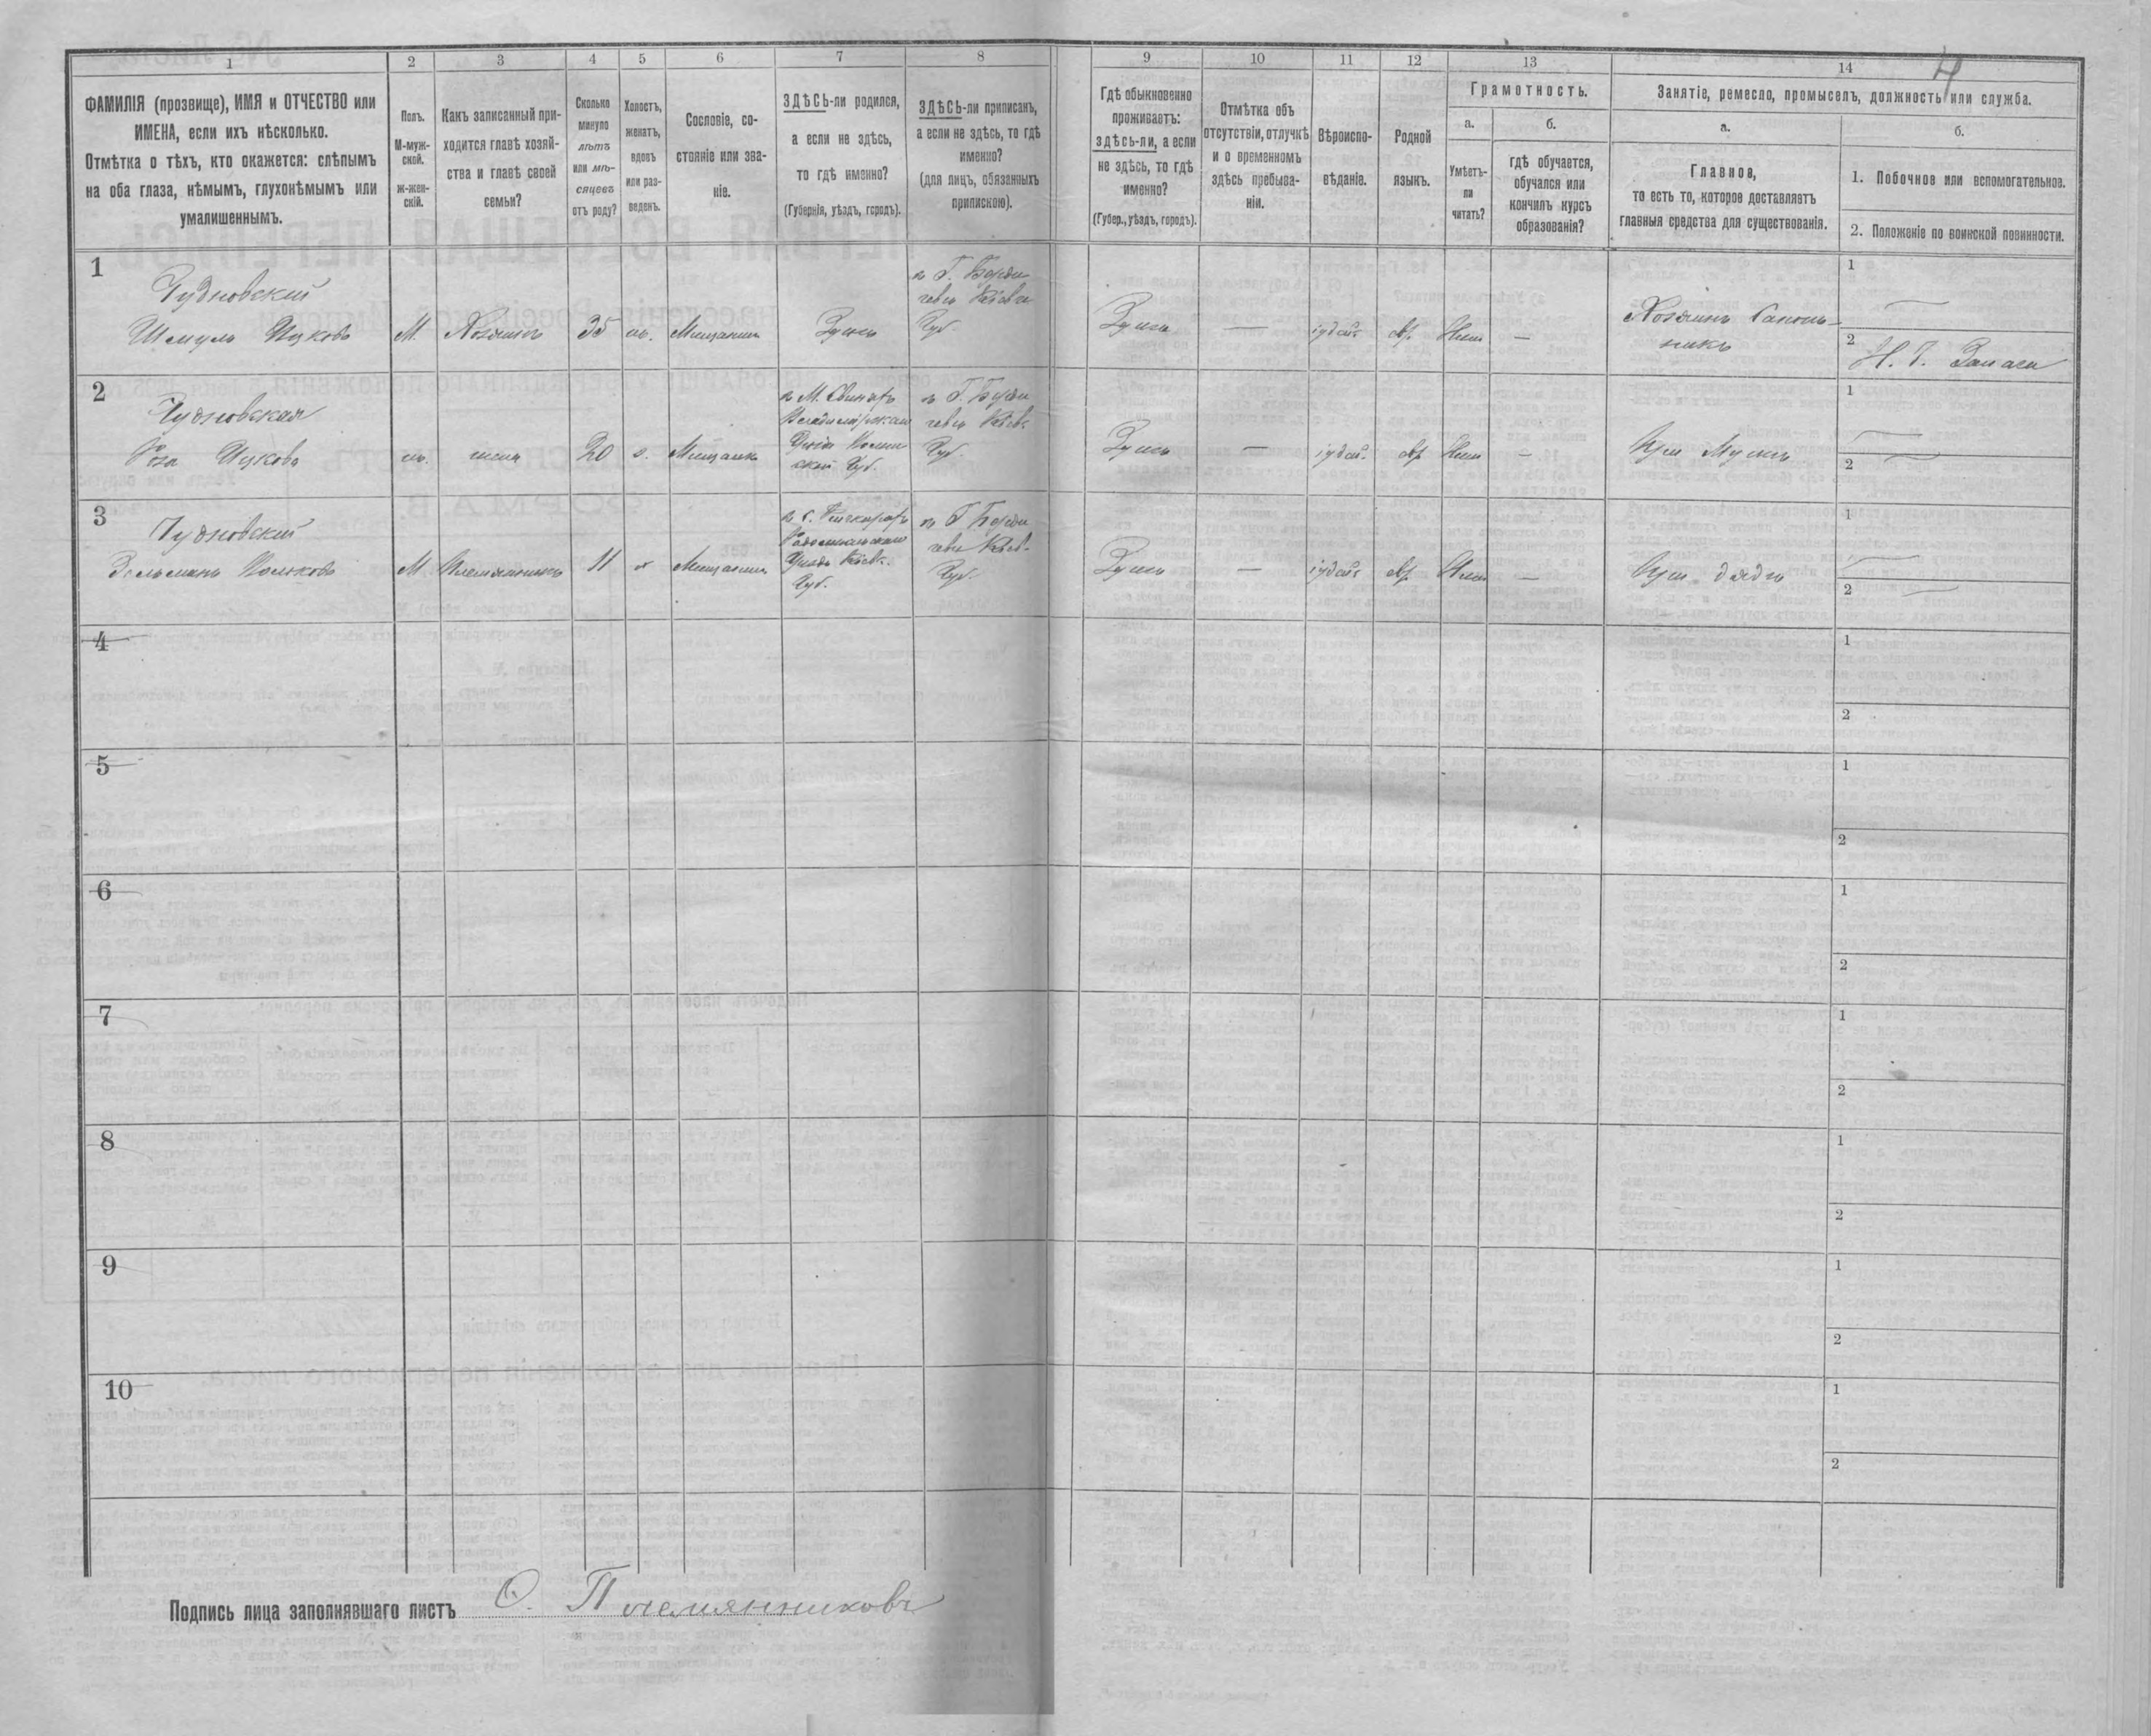 4
1
ФАМИЛІЯ (прозвище), ИМЯ и ОТЧЕСТВО или
ИМЕНА, если ихъ нѣсколько.
Отмѣтка о тѣхъ, кто окажется: слѣпымъ
на оба глаза, нѣмымъ, глухонѣмымъ или
умалишеннымъ.
2
Полъ.
М-муж-
ской.
ж-жен-
скій.
3
Какъ записанный при-
ходится главѣ хозяй-
ства и главѣ своей
семьи?
4
Сколько
минуло
лѣтъ
или мѣ-
сяцевъ
отъ роду?
5
Холостъ,
женатъ,
вдовъ
или раз-
веденъ.
6
Сословіе, со-
стояніе или зва-
ніе.
7
ЗДѢСЬ-ли родился,
а если не здѣсь,
то гдѣ именно?
(Губернія, уѣздъ, городъ).
8
ЗДѢСЬ-ли приписанъ,
а если не здѣсь, то гдѣ
именно?
(для лицъ, обязанныхъ
припискою).
9
Гдѣ обыкновенно
проживаетъ:
здѣсь-ли, а если
не здѣсь, то гдѣ
именно?
(Губер., уѣздъ, городъ).
10
Отмѣтка объ
отсутствіи, отлучкѣ
и о временномъ
здѣсь пребыва-
ніи.
11
Вѣроиспо-
вѣданіе.
12
Родной
языкъ.
13
Грамотность.
а.
Умѣетъ-
ли
читать?
б.
гдѣ обучается,
обучался или
кончилъ курсъ
образованія?
14
Занятіе, ремесло, промыселъ, должность или служба.
а.
Главное,
то есть то, которое доставляетъ
главныя средства для существованія.
б.
1. Побочное или вспомогательное.
2. Положеніе по воинской повинности.
1
Чудновскій
Шмуль Ицковъ
М.
Хозяинъ
35
ж.
Мещанинъ
Здѣсь
въ Г. Берди
чевѣ Кіевск
Губ.
Здѣсь
—
іудей
евр.
Нѣтъ
—
Хозяинъ Сапож-
никъ
1
2
2
Чудновская
Роза Ицкова
ж.
жена
20
з.
Мещанка
Губ.
въ Г. Берди
чевѣ Кіевс.
Губ.
Здѣсь
—
іудей.
евр
Нѣтъ
—
При Мужѣ
1
2
3
Чудновскій
Зельманъ
М
Племянникъ
11
х
Мещанинъ
Радомысльскаго
Уѣзда Кіевс.
Губ.
въ Г Берди
чевѣ Кіев-
Губ.
Здѣсь
—
іудей
евр.
Нѣтъ
—
При дядѣ
1
2
4
1
2
5
1
2
6
1
2
7
1
2
8
1
2
9
1
2
10
1
2
Подпись лица заполнявшаго листъ О. Племянниковъ